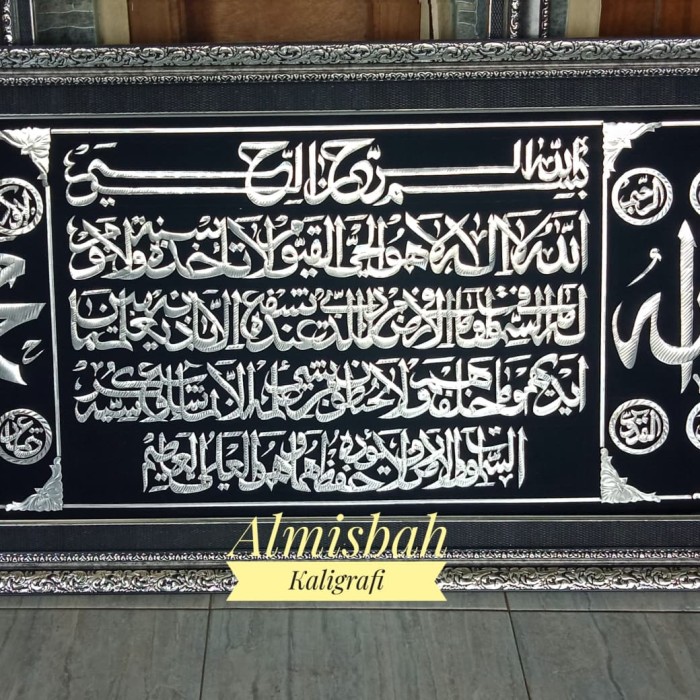 بسم الله الرحمن الرحيم
الله لا اله الا هو الحي القيوم لا تأخذه سنة ولا نوم
له ما في السموات وما في الارض من ذا الذي يشفع عنده الا باذنه يعلم ما بين
ايديهم وما خلفهم ولا يحيطون بشيء من علمه الا بما شاء وسع كرسيه
السموات والارض ولا يؤده حفظهما وهو العلي العظيم
الله
القدوس
Almisbah
Kaligrafi